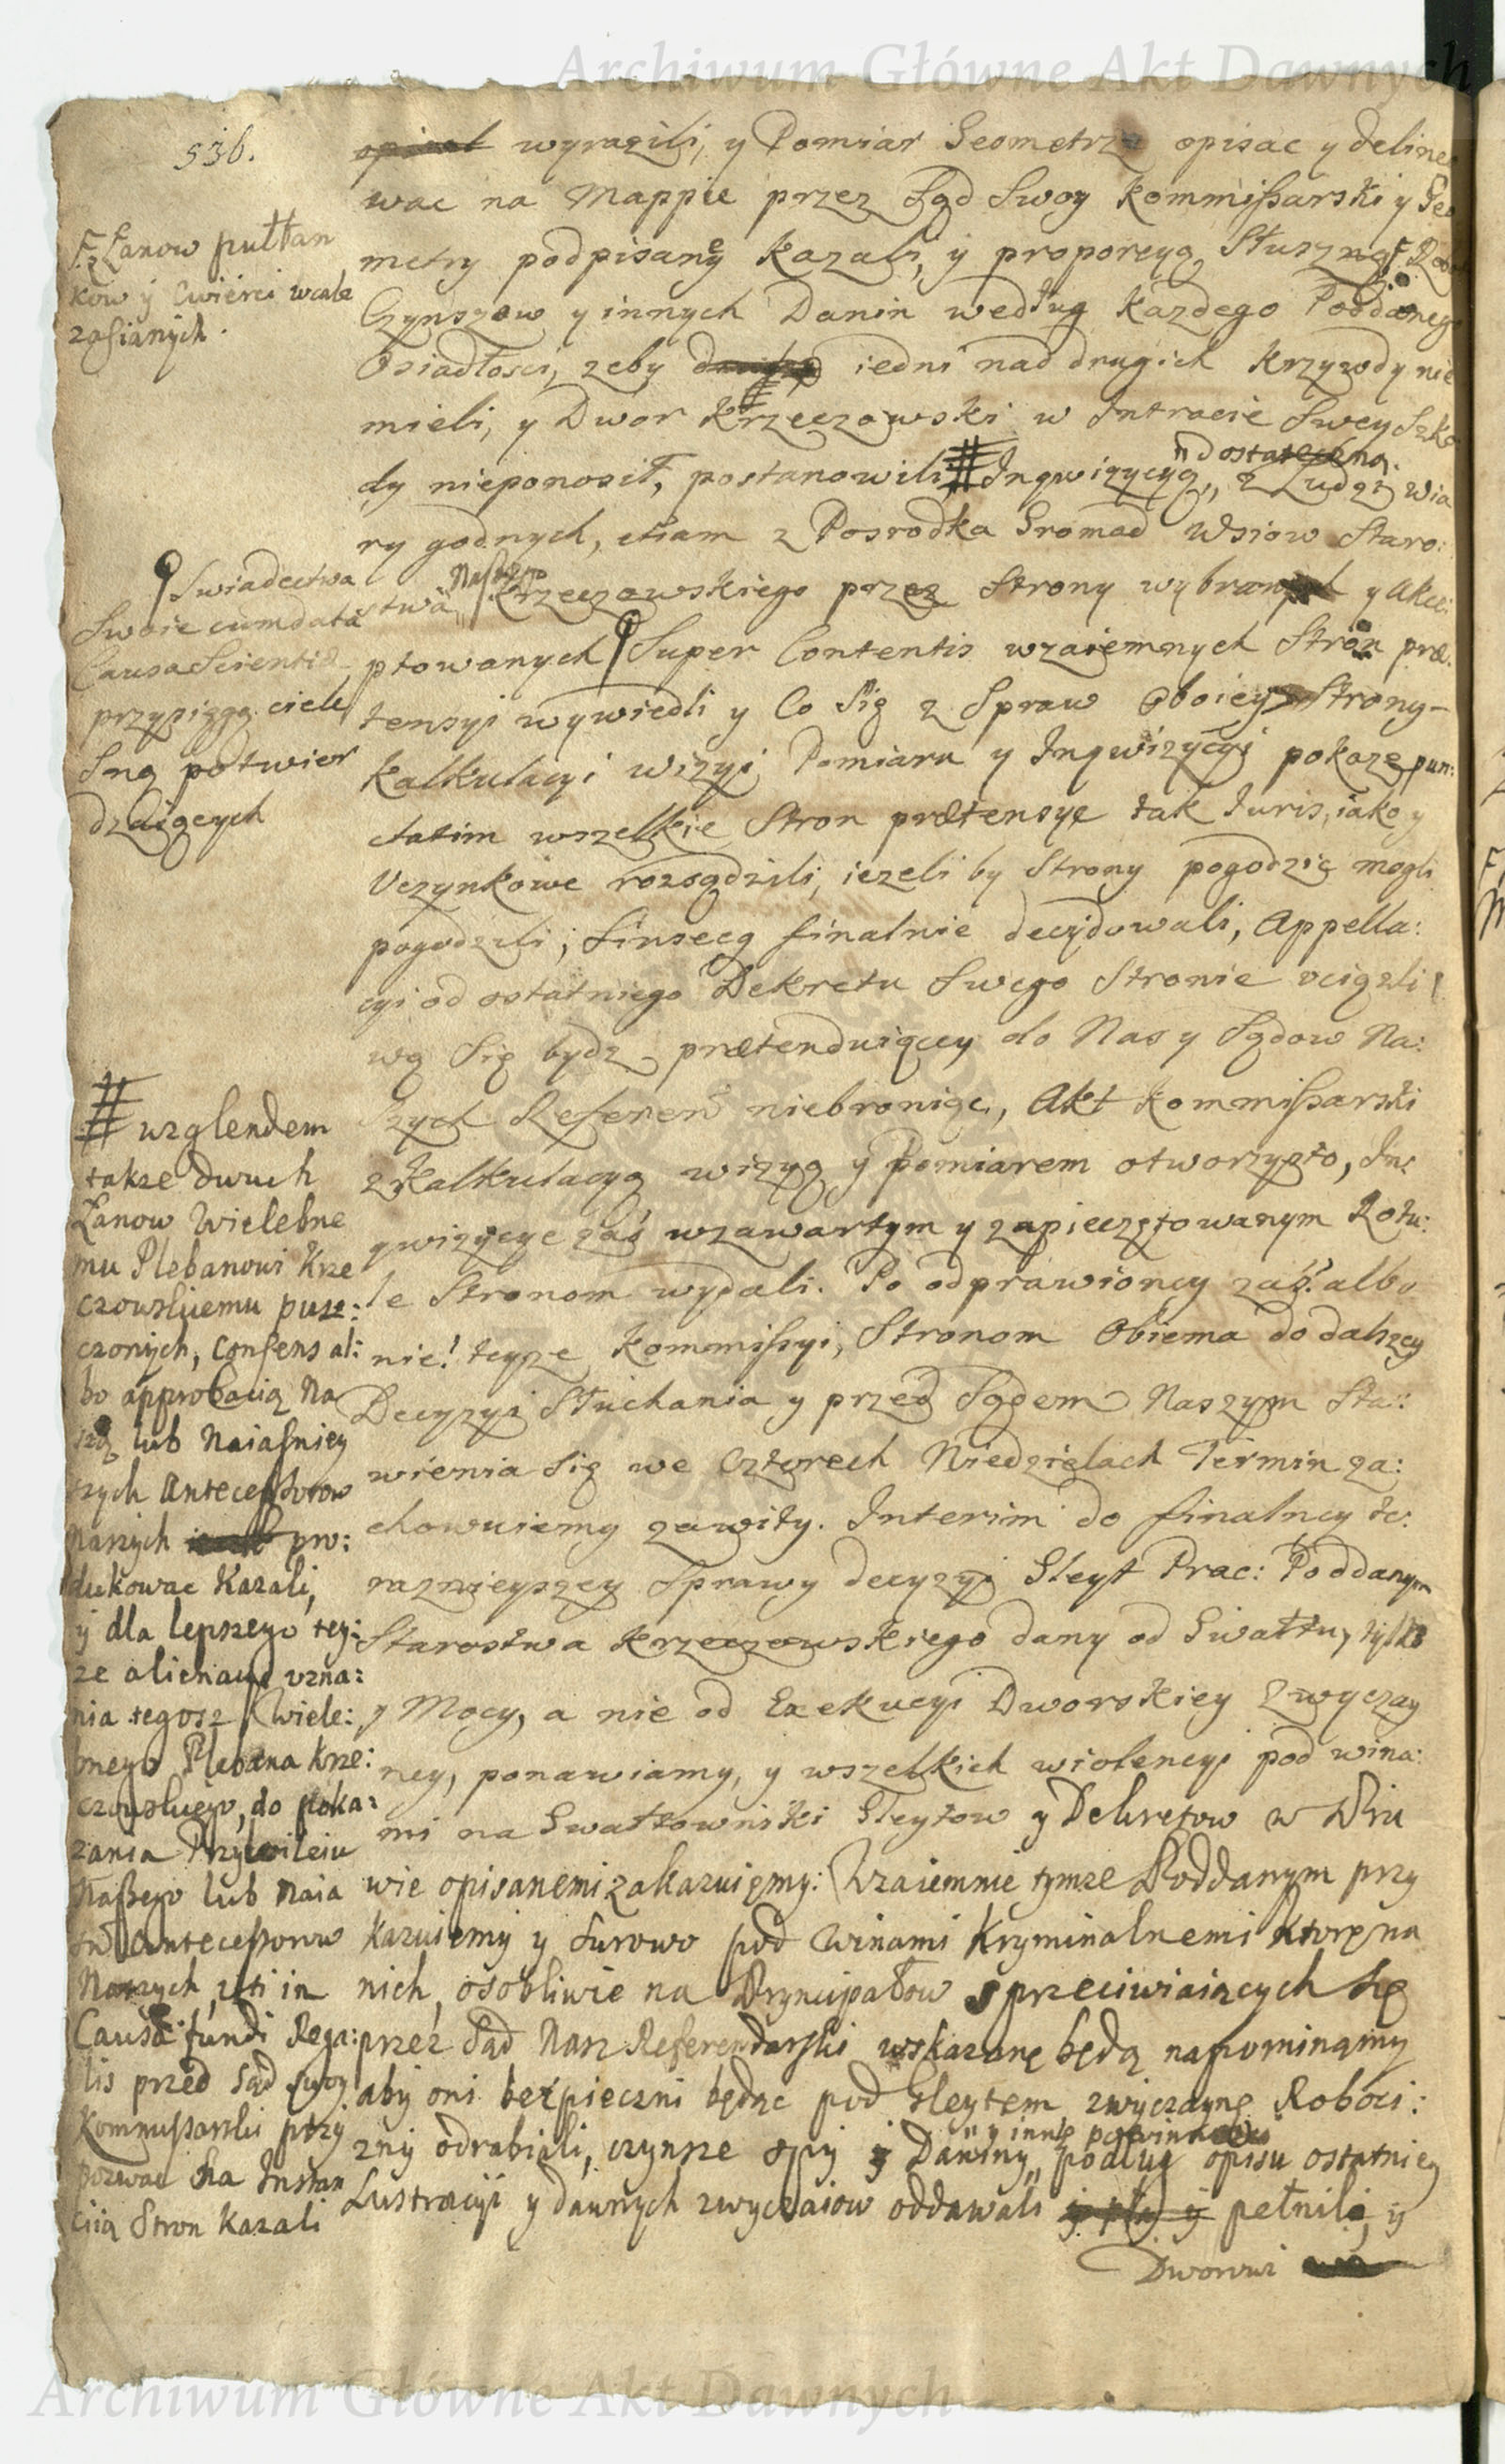 Archiwum Główne Akt Dawnych
536.
opisał wyrazili, y Pomiar Geometrze opisac y deline
wac na Mappie przez Sąd Swoy Kommissarski y Geo
metry podpisaney kazali, y proporcyą słuszną F
Czynszow y innych Danin według kazdego Poddanego
Osiadłosci, zeby iedni nad drugich krzywdy nie
mieli, y Dwor Krzeczowski w Intracie Swey Szko
dy nieponosił, postanowili # Inqwizycyą, dostateczną z Ludzi wia
ry godnych, etiam z Posrodka Gromad Wsiow Staro:
stwa Naszego Krzeczowskiego przez Strony wybranych y akce:
ptowanych Super Contentis wzaiemnych Stron præ:
tensyi wywiedli y Co Się z Spraw Oboiey Strony
Kalkulacyi wizyi Pomiaru y Inqwizycyi pokaze pun:
ctatim wszelkie Stron prætensye tak Juris, iako y
Uczynkowe rozsądzili, iezeli by Strony pogodzić mogli
pogodzili, sinsecq finalnie decydowali, Appella:
cyi od ostatniego Dekretu Swego Stronie uciązli
wą Się bydz prætenduiącey do Nas y Sądow Na:
szych Referen niebroniąc, Akt Kommissarski
z Kalkulacyą wizyą y Pomiarem otworzysto, In:
qwizycye zaś wzawartym y zapieczętowanym Rotu:
le Stronom wydali. Po odprawioney zaś albo
nie! teyze Kommissyi, Stronom Obiema do dalszey
Decyzyi Słuchania y przed Sądem Naszym Sta:
wienia Się we Czterech Niedzielach Termin za:
chowuiemy zawity. Interim do finalney te:
raznieyszey Sprawy decyzyi Gleyt Prac: Poddanym
Starostwa Krzeczowskiego dany od Gwałtu, tylko
y Mocy, a nie od Exekucyi Dworskiey Zwyczay
ney, ponawiamy, y wszelkich wiolencyi pod wina:
mi na Gwałtowniki Gleytow y Dekretow w Pra
wie opisanemi zakazuięmy: Wzaiemnie tymze Poddanym przy
kazuiemy y surowo pod winami kryminalnemi ktore na
nich, osobliwie na Pryncypałow sprzeciwiaiących Się
przez Sąd Nasz Referendarski wskazane będą napominamy
aby oni bezpieczni będąc pod Gleytem zwyczayne Roboci:
zny odrabiali, czynsze ospy y Daniny, y inne powinności podług opisu ostatniey
Lustracyi y dawnych zwyczaiow oddawali y pełnili, y
Dworowi
F. z Łanow pułłan
kow y Cwierci wcale
zasianych.
Swiadectwa
Swoie cum data
Causa Scientiæ
przysięgą ciele
sną potwier
dzaiących
# wzglendem
takze dwuch
Łanow Wielebne
mu Plebanowi Krze
czowskiemu pusz:
czonych, Consens al:
bo approbacią Na
szą lub Naiasniey
szych Antecessorow
Naszych pro:
dukowac kazali,
y dla lepszego tey:
ze alienacyi uzna:
nia tegosz Wiele:
bnego Plebana Krze:
czowskiego, do poka:
zania Przywileiu
Naszego lub Naia
Antecessorow
Naszych, uti in
Causa fundi Rega:
lis przed Sąd swoy
Kommissarski przy
pozwac na Instan
cią Stron kazali
Archiwum Główne Akt Dawnych